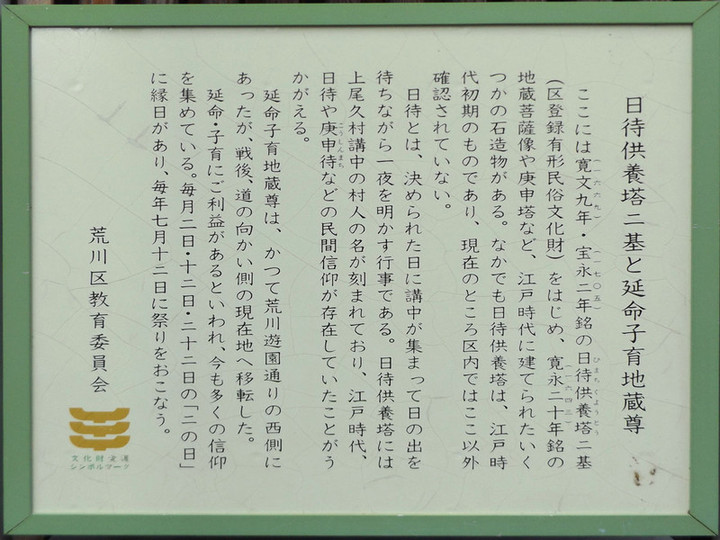 日待供養塔二基と延命子育地蔵尊
ここには寛文九年・宝永二年銘の日待供養塔二基
(一六六九)
(一七〇五)
ひまちくようとう
(区登録有形民俗文化財)をはじめ、寛永二十年銘の
(一六四三)
地蔵菩薩像や庚申塔など、江戸時代に建てられたいく
つかの石造物がある。なかでも日待供養塔は、江戸時
代初期のものであり、現在のところ区内ではここ以外
確認されていない。
日待とは、決められた日に講中が集まって日の出を
待ちながら一夜を明かす行事である。日待供養塔には
上尾久村講中の村人の名が刻まれており、江戸時代、
日待や庚申待などの民間信仰が存在していたことがう
こうしんまち
かがえる。
延命子育地蔵尊は、かつて荒川遊園通りの西側に
あったが、戦後、道の向かい側の現在地へ移転した。
延命・子育にご利益があるといわれ、今も多くの信仰
を集めている。毎月二日・十二日・二十二日の「二の日」
に縁日があり、毎年七月十二日に祭りをおこなう。
荒川区教育委員会
文化財愛護
シンボルマーク